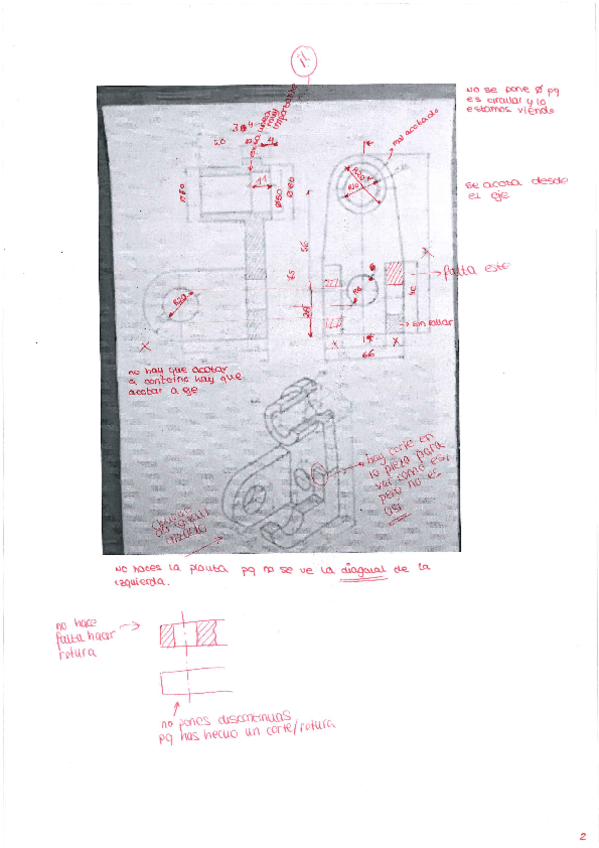 no se pone Ø pq
es circular y lo
estamos viendo
mal acotado
se acota desde
el eje
esta linea
muy
importante
50
11
Ø60
Ø50
Ø60
R20
56
65
28
falta este
sin rallar
66
X
no hay que acotar
a contorno hay que
acotar a eje
hay corte en
la pieza para
ver como es,
pero no es
así
no haces la planta pq no se ve la diagonal de la
izquierda.
no hace
falta hacer
rotura
no pones discontinuas
pq has hecho un corte/rotura
2